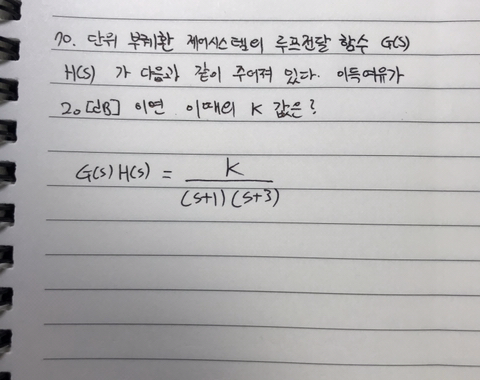 70. 단위 부궤환 제어시스템의 루프전달 함수 G(s)
H(s) 가 다음과 같이 주어져 있다. 이득여유가
20[dB] 이면 이때의 K 값은?
G(s)H(s) = K / (s+1)(s+3)